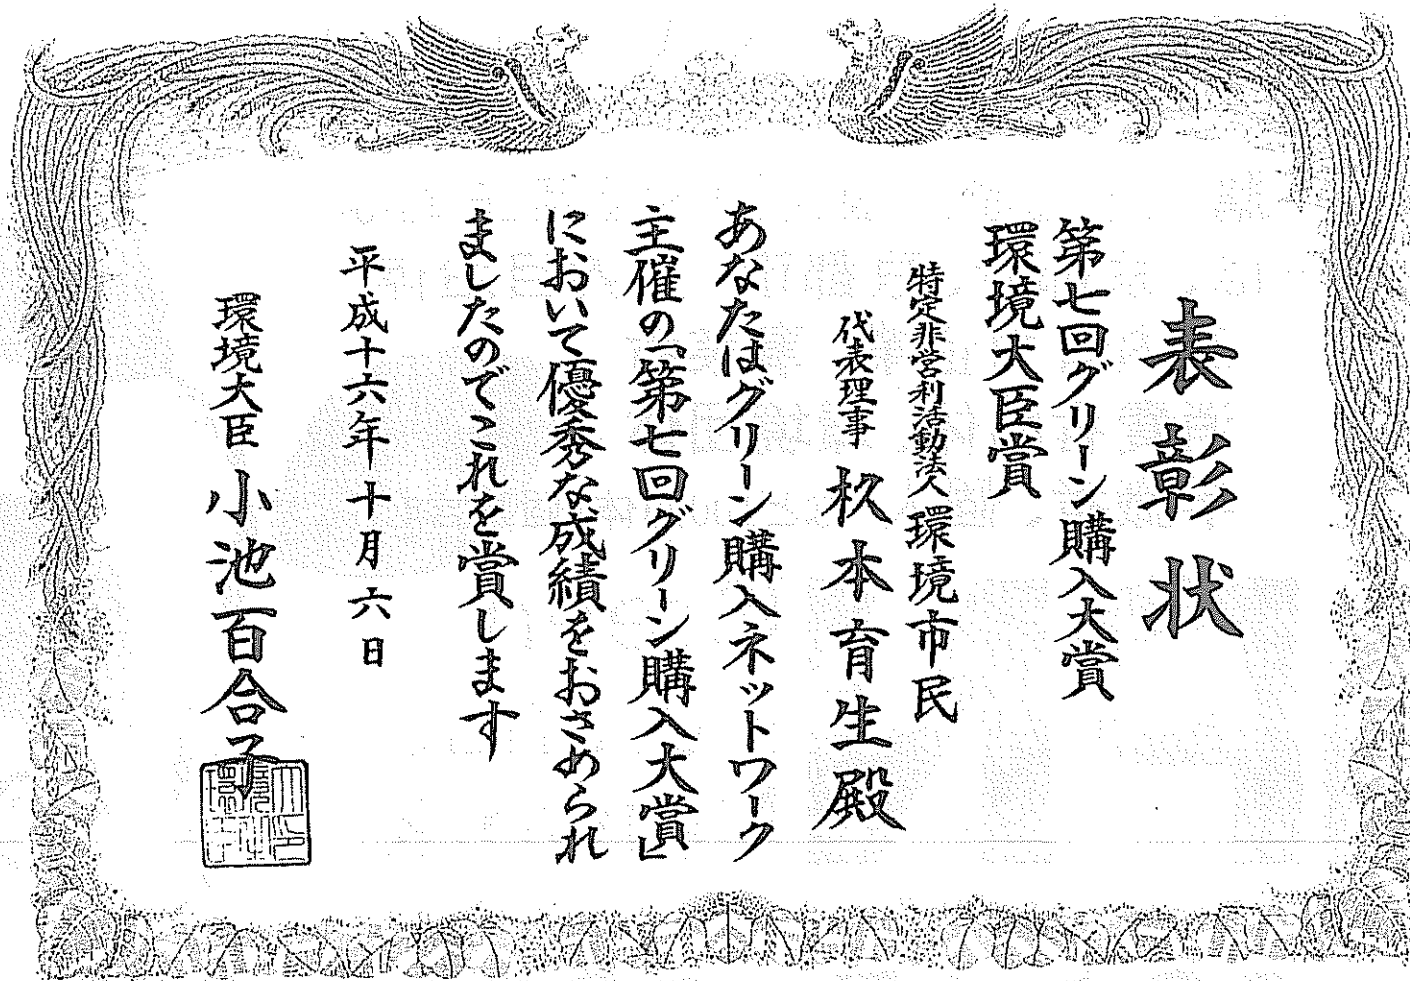 表彰状
第七回グリーン購入大賞
環境大臣賞
特定非営利活動法人 環境市民
代表理事 杦本育生殿
あなたはグリーン購入ネットワーク
主催の「第七回グリーン購入大賞」
において優秀な成績をおさめられ
ましたのでこれを賞します
平成十六年十月六日
環境大臣 小池百合子